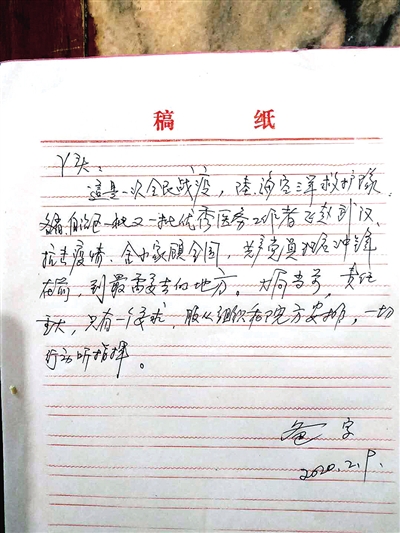 稿 纸
丫头:
這是一次全民战疫,陆海空三军救护队
各省自治区一批又一批优秀医务工作者驰救武汉
抗击疫情,舍小家顾全国,共产党员理应冲锋
在前,到最需要去的地方。大局当前,责任
重大,只有一个要求,服从组织和院方安排,一切
行动听指挥。
爸字
2020.2.9.